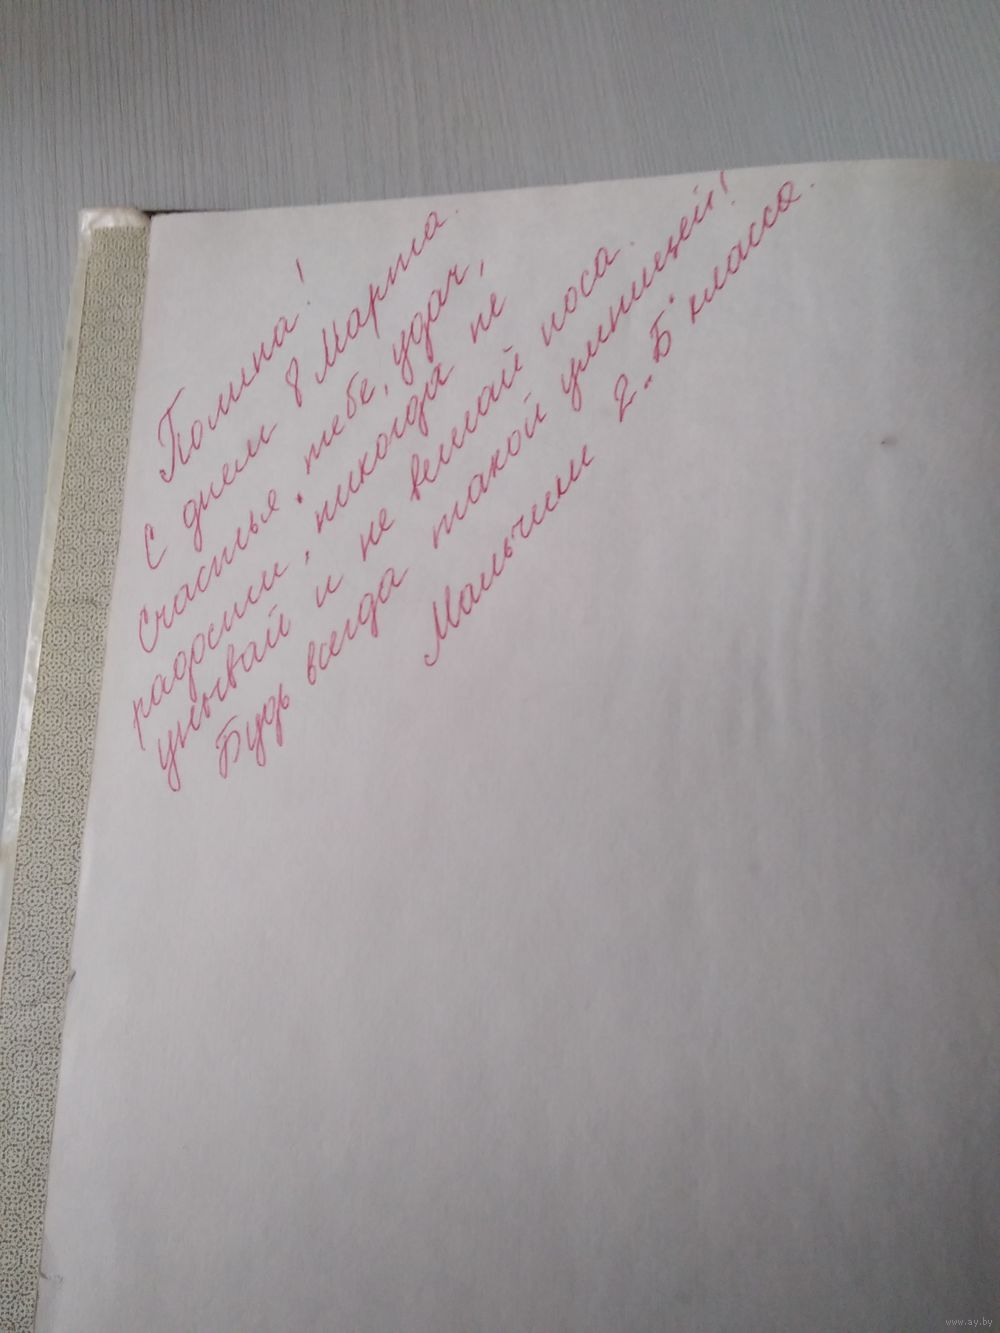 Полина!
С днем 8 Марта.
Счастья тебе, удач,
радости, никогда не
унывай и не вешай носа.
Будь всегда такой умницей!
Мальчики 2 „Б" класса.
www.ay.by